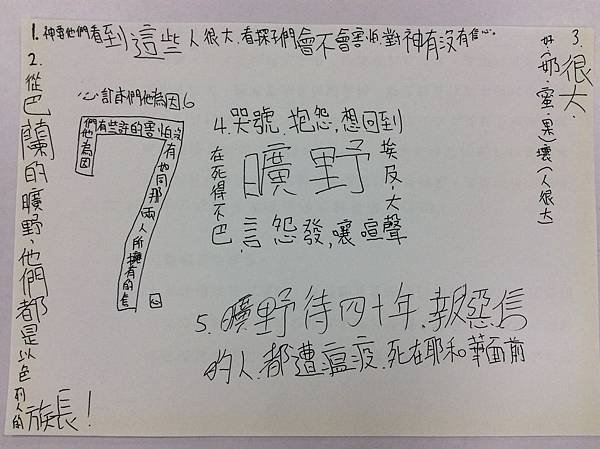 1. 神要他們看到這些人很大.看探子們會不會害怕.對神有沒有信心。
2.從巴蘭的曠野、他們都是以色列人的族長!
3.很大.
好.奶.蜜.果)壞(人很大)
4.哭號.抱怨.想回到
埃及.大
聲喧嚷,發怨言,巴
不得死在
曠野
5. 曠野待四十年.報惡信
的人.都遭瘟疫.死在耶和華面前
6因為他們
心
因為他們
有些許的害怕沒
有如同那兩人所擁有的信
心